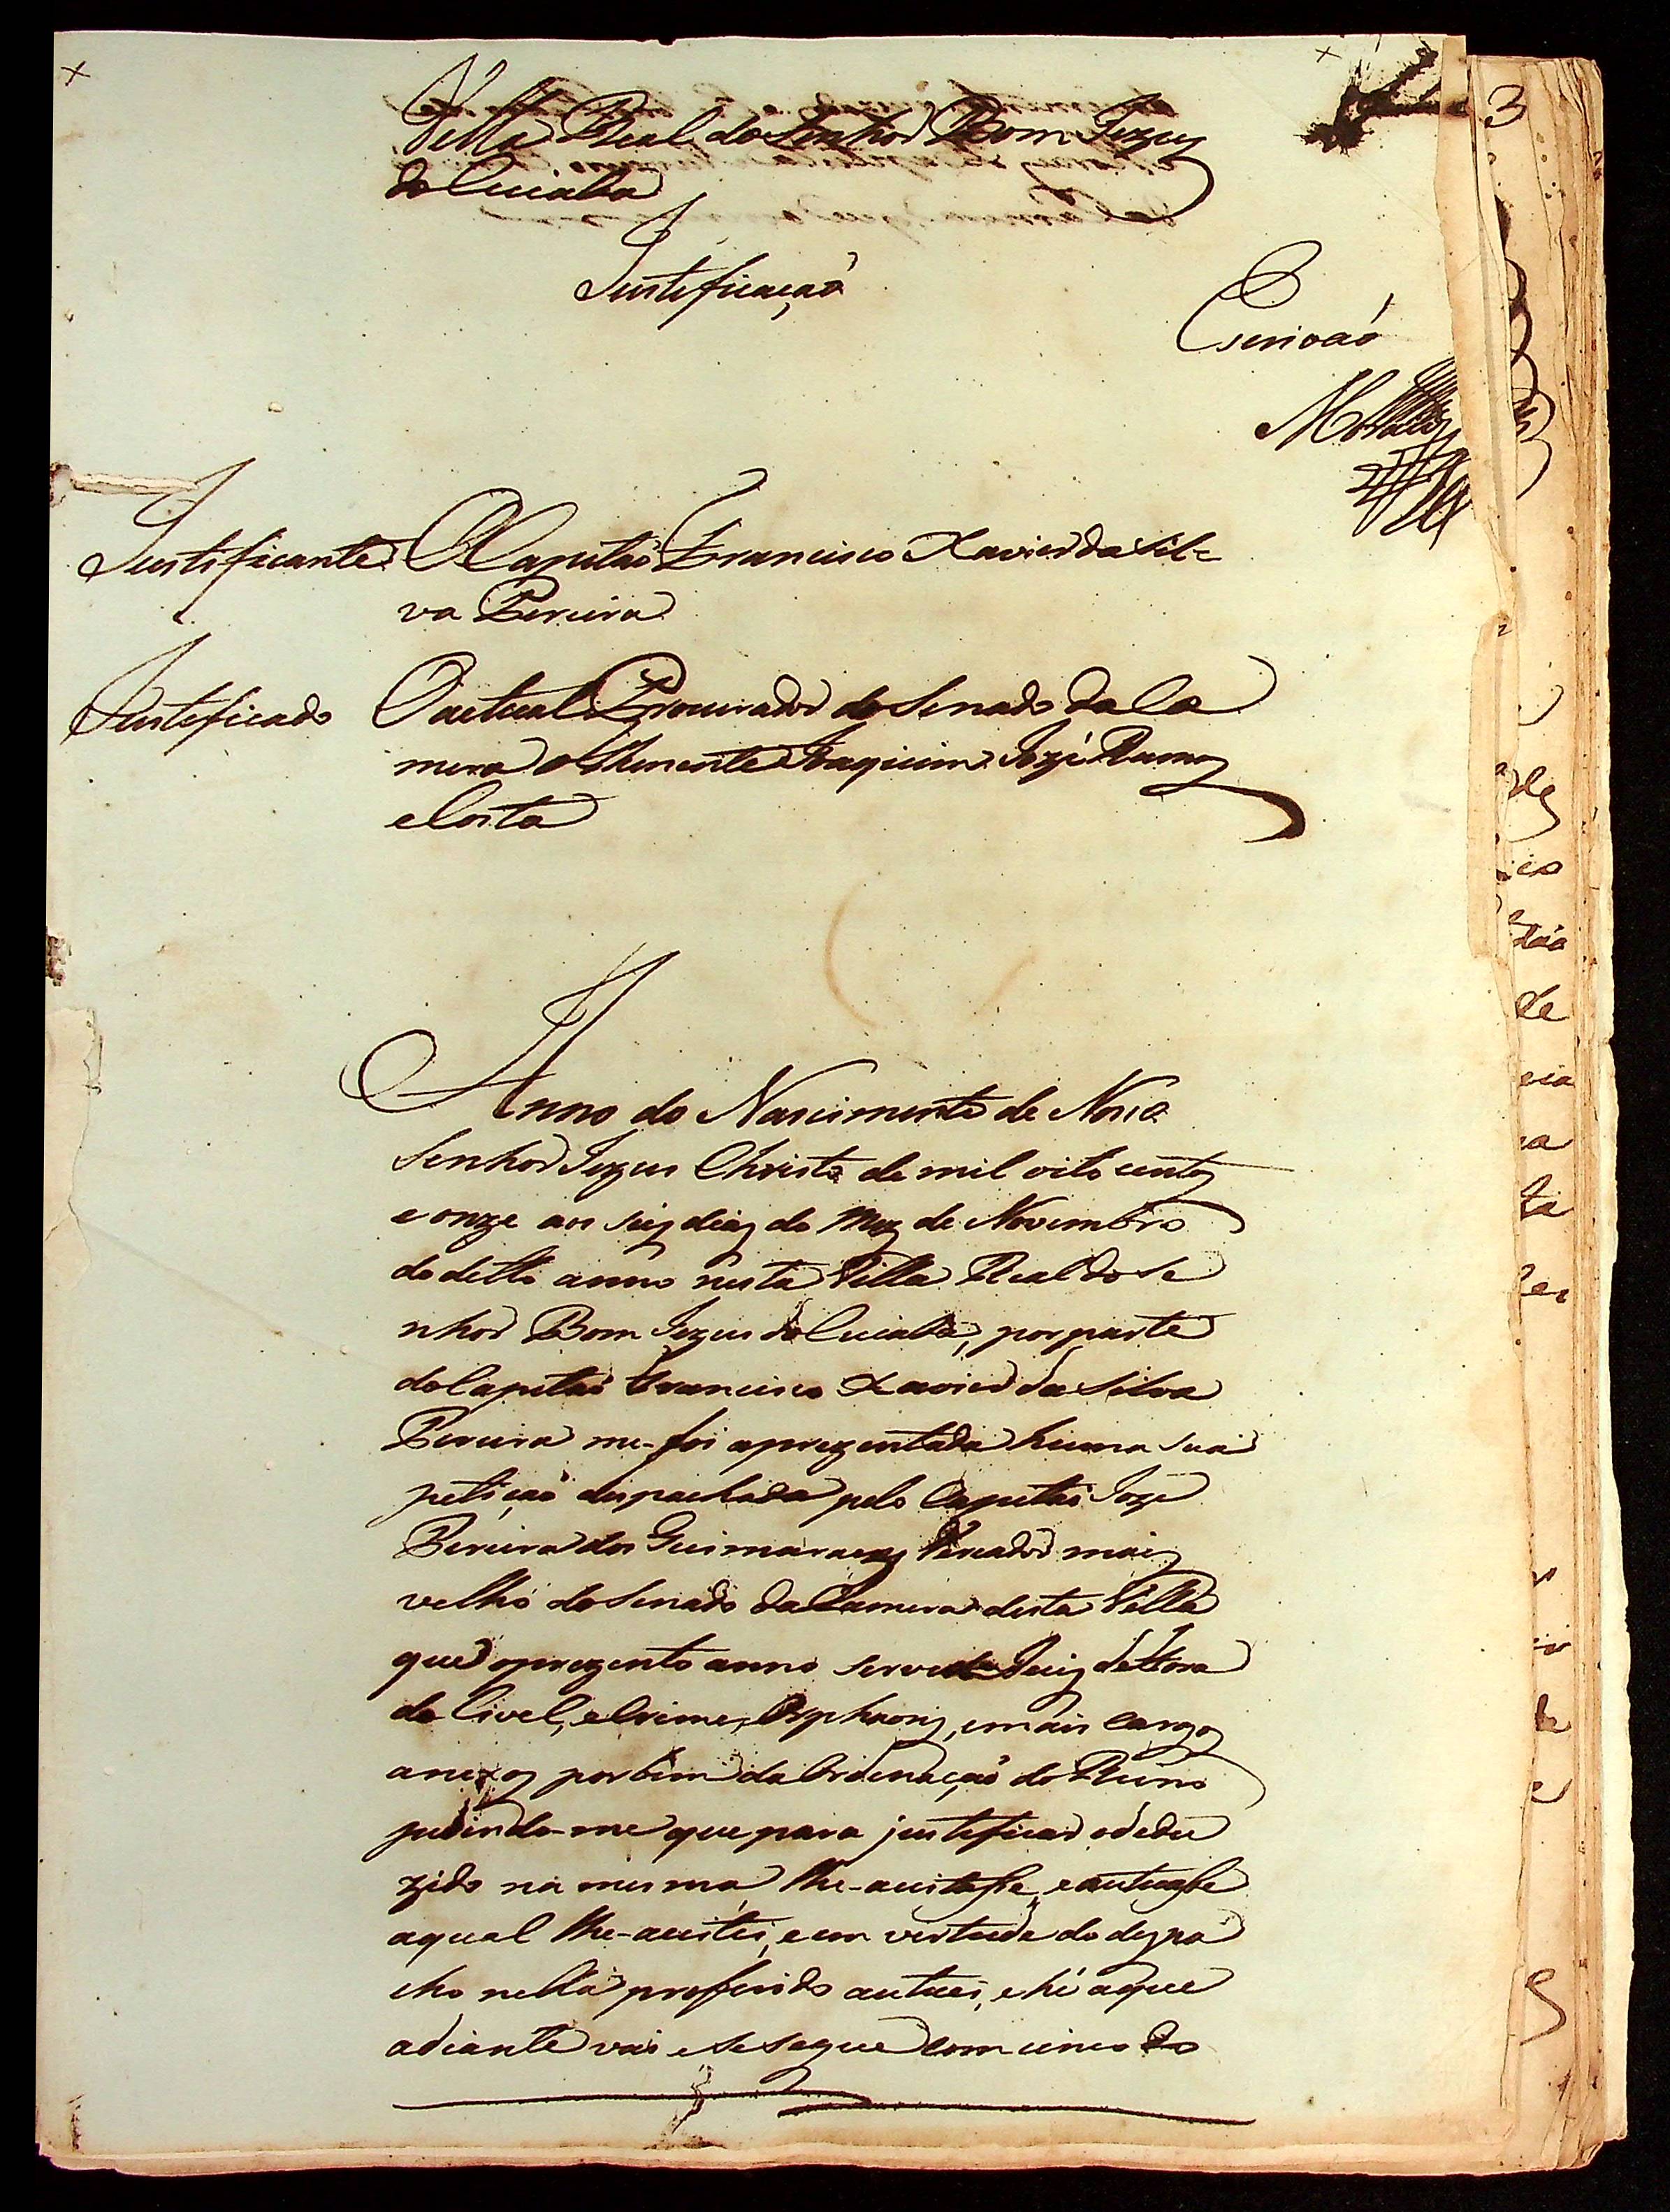 Villa Real do Senhor Bom Jezus
do Cuiabá
Justificaçaõ
Escrivaõ
Justificante O Capitaõ Francisco Xavier da Sil-
va Pereira
Justificado O actual Procurador do Senado da Ca
mera o Thenente Joaquim Jozé Ramos
e Costa
Anno do Nascimento de Nosso
Senhor Jezus Christo de mil oito centos
e onze aos seis dias do Mez de Novembro
do ditto anno nesta Villa Real do Se
nhor Bom Jezus do Cuiabá, por parte
do Capitaõ Francisco Xavier da Silva
Pereira me-foi aprezentada huma sua
petiçaõ despachada pelo Capitaõ Joze
Pereira dos Guimaraens Vereador mais
velho do Senado da Camera desta Villa
que o prezente anno serve de Juiz de Fora
do Civel, e Crime, Orphaons, e mais cargos
anexos por bem da Ordenaçaõ do Reino
pedindo-me que para justificar o dedu
zido na mesma lhe-aceitasse, e autuasse
a qual lhe-aceitei, e em virtude do despa
cho nella proferido autuei, e hé a que
adiante vai e se segue com cinco do
3